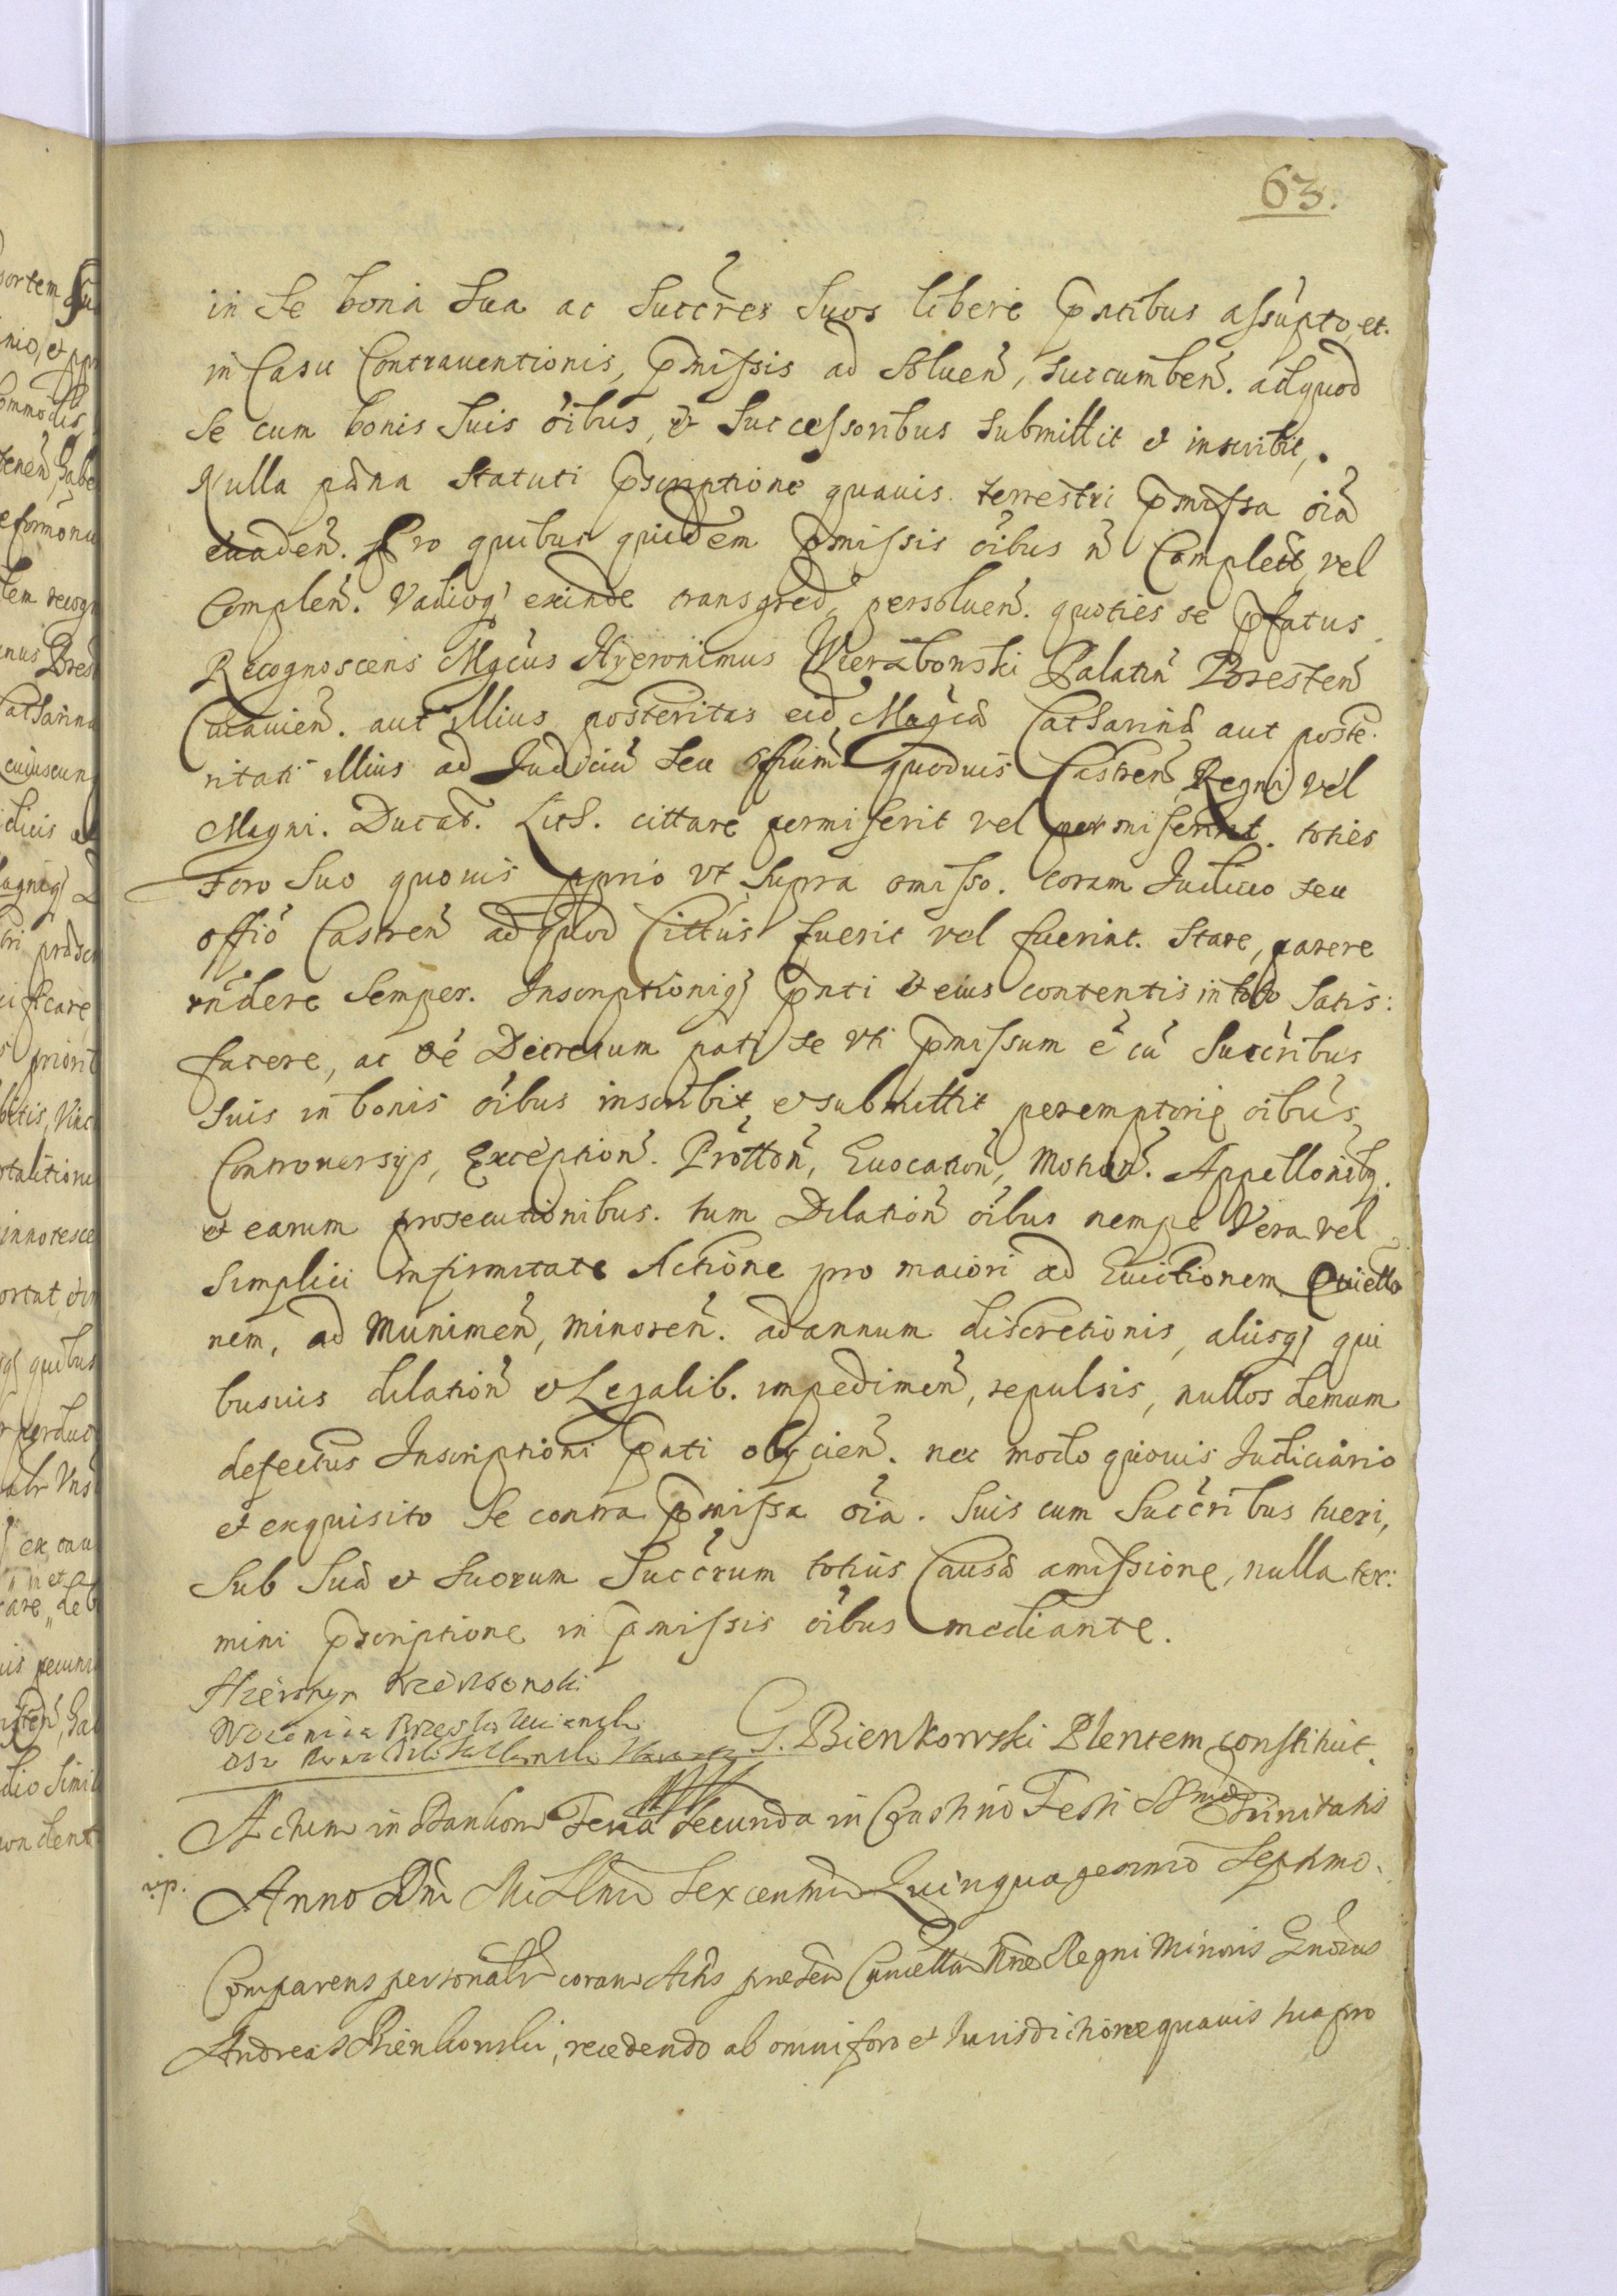 63.
in Se bona Sua ac Succres Suos libere pntibus assupto, et.
in Casu Contrauentionis, pmissis ad Soluen, succumben. ad quod
Se cum bonis Suis oibus, et Successoribus submittit et inscribit,
Nulla pœna Statuti pscriptione quauis terrestri pmissa oia
euaden. Pro quibus quidem pmissis oibus n Completis, vel
Complen. Vadioq exinde transgred, persoluen. quoties se pfatus
Recognoscens Mgcus Hyeronimus Palatin Bresten
Cuiauien. aut illius posteritas eid Magcæ Catharinæ aut poste
ritati illius ad Judiciu seu offium quoduis Castren Regni vel
Magni. Ducat. Lith. cittare permiserit vel permiserint. toties
Foro Suo quouis pprio vt Supra omisso. coram Judicio seu
offio Castren ad quod Cittus fuerit vel fuerint. Stare, parere
rndere Semper. Inscriptioniq pnti et eius contentis in toto Satis:
facere, ac oe Decretum pati se vti pmissum e cu Succribus
Suis in bonis oibus inscribit et submittit peremptorie oibus
Controuersys, Exception. Protton, Euocation, Motion. Appellonibq.
et earum prosecutionibus. tum Dilation oibus nempe Vera vel
Simplici infirmitate Actione pro maiori ad Euictionem Quietta
nem, ad Munimen, minoren. ad annum discretionis, aliisq qui
busuis dilation et Legalib. impedimen, repulsis, nullos demum
defectus Inscriptioni pnti obycien. nec modo quouis Judiciario
et exquisito Se contra pmissa oia. Suis cum Succribus tueri,
Sub Sua et Suorum Succrum totius Causæ amissione, nulla ter:
mini pscriptione in pmissis oibus mediante.
G. Bienkowski Plentem constituit.
Actum in Dankow Feria Secunda in Crastino Festi SSmæ Trinitatis
Anno Dni Millmo Sexcentmo Quinquagesimo Septimo.
Comparens personalr coram Actis præsen Cancellæ Regni Minoris Gnosus
Andreas Bienkowski, recedendo ab omni foro et Jurisdictione quauis sua pro